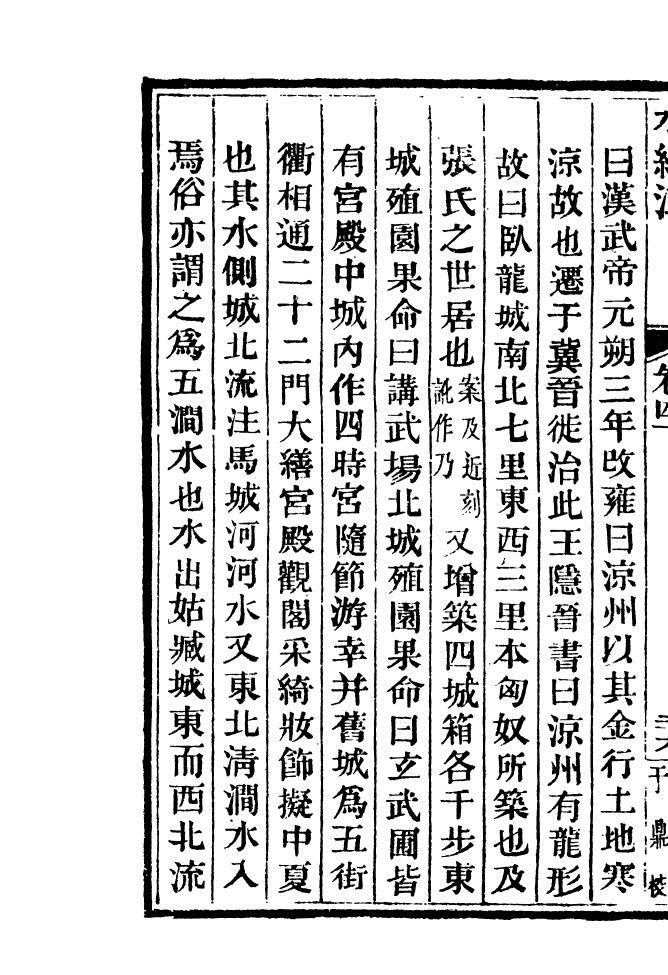 水經注 卷四
曰漢武帝元朔三年改雍曰涼州以其金行土地寒
涼故也遷于冀晉徙治此王隱晉書曰涼州有龍形
故曰臥龍城南北七里東西三里本匈奴所築也及
張氏之世居也案及近刻訛作乃又增築四城箱各千步東
城殖園果命曰講武場北城殖園果命曰玄武圃皆
有宮殿中城內作四時宮隨節游幸并舊城爲五街
衢相通二十二門大繕宮殿觀閣采綺妝飾擬中夏
也其水側城北流注馬城河河水又東北淸澗水入
焉俗亦謂之爲五澗水也水出姑臧城東而西北流